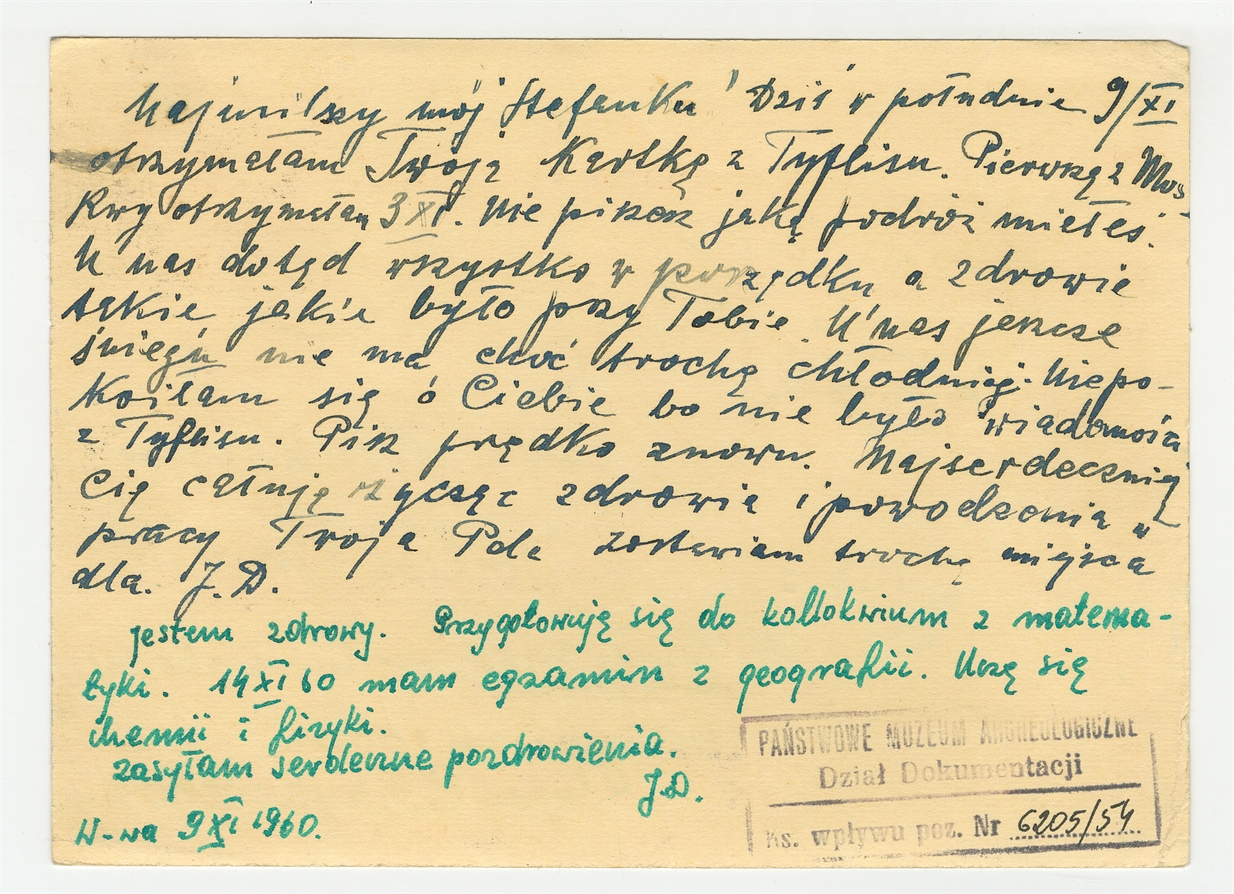 Najmilszy mój Stefanku! Dziś w południe 9/XI
otrzymałam Twoją Kartkę z Tyflisu. Pierwszą z Mos-
kwy otrzymałam 3 XI. Nie piszesz jaką podróż miełeś.
U nas dotąd wszystko w porządku a zdrowie
takie jakie było przy Tobie. U nas jeszcze
śniegu nie ma choć trochę chłodniej. Niepo-
koiłam się o Ciebie bo nie było wiadomości
z Tyflisu. Pisz prędko znowu. Najserdeczniej
Cię całuję życząc zdrowia i powodzenia w
pracy Twoja Pola zostawiam trochę miejsca
dla. J.D.
jestem zdrowy. Przygotowuję się do kollokwium z matema-
tyki. 14 XI 60 mam egzamin z geografii. Uczę się
chemii i fizyki.
zasyłam serdeczne pozdrowienia.
J.D.
W-wa 9 XI 1960.
PAŃSTWOWE MUZEUM ARCHEOLOGICZNE
Dział Dokumentacji
Ks. wpływu poz. Nr 6205/54